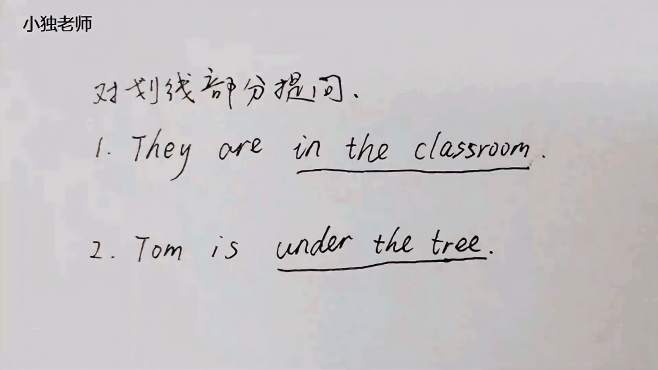 小独老师
对划线部分提问、
1. They are in the classroom.
2. Tom is under the tree.